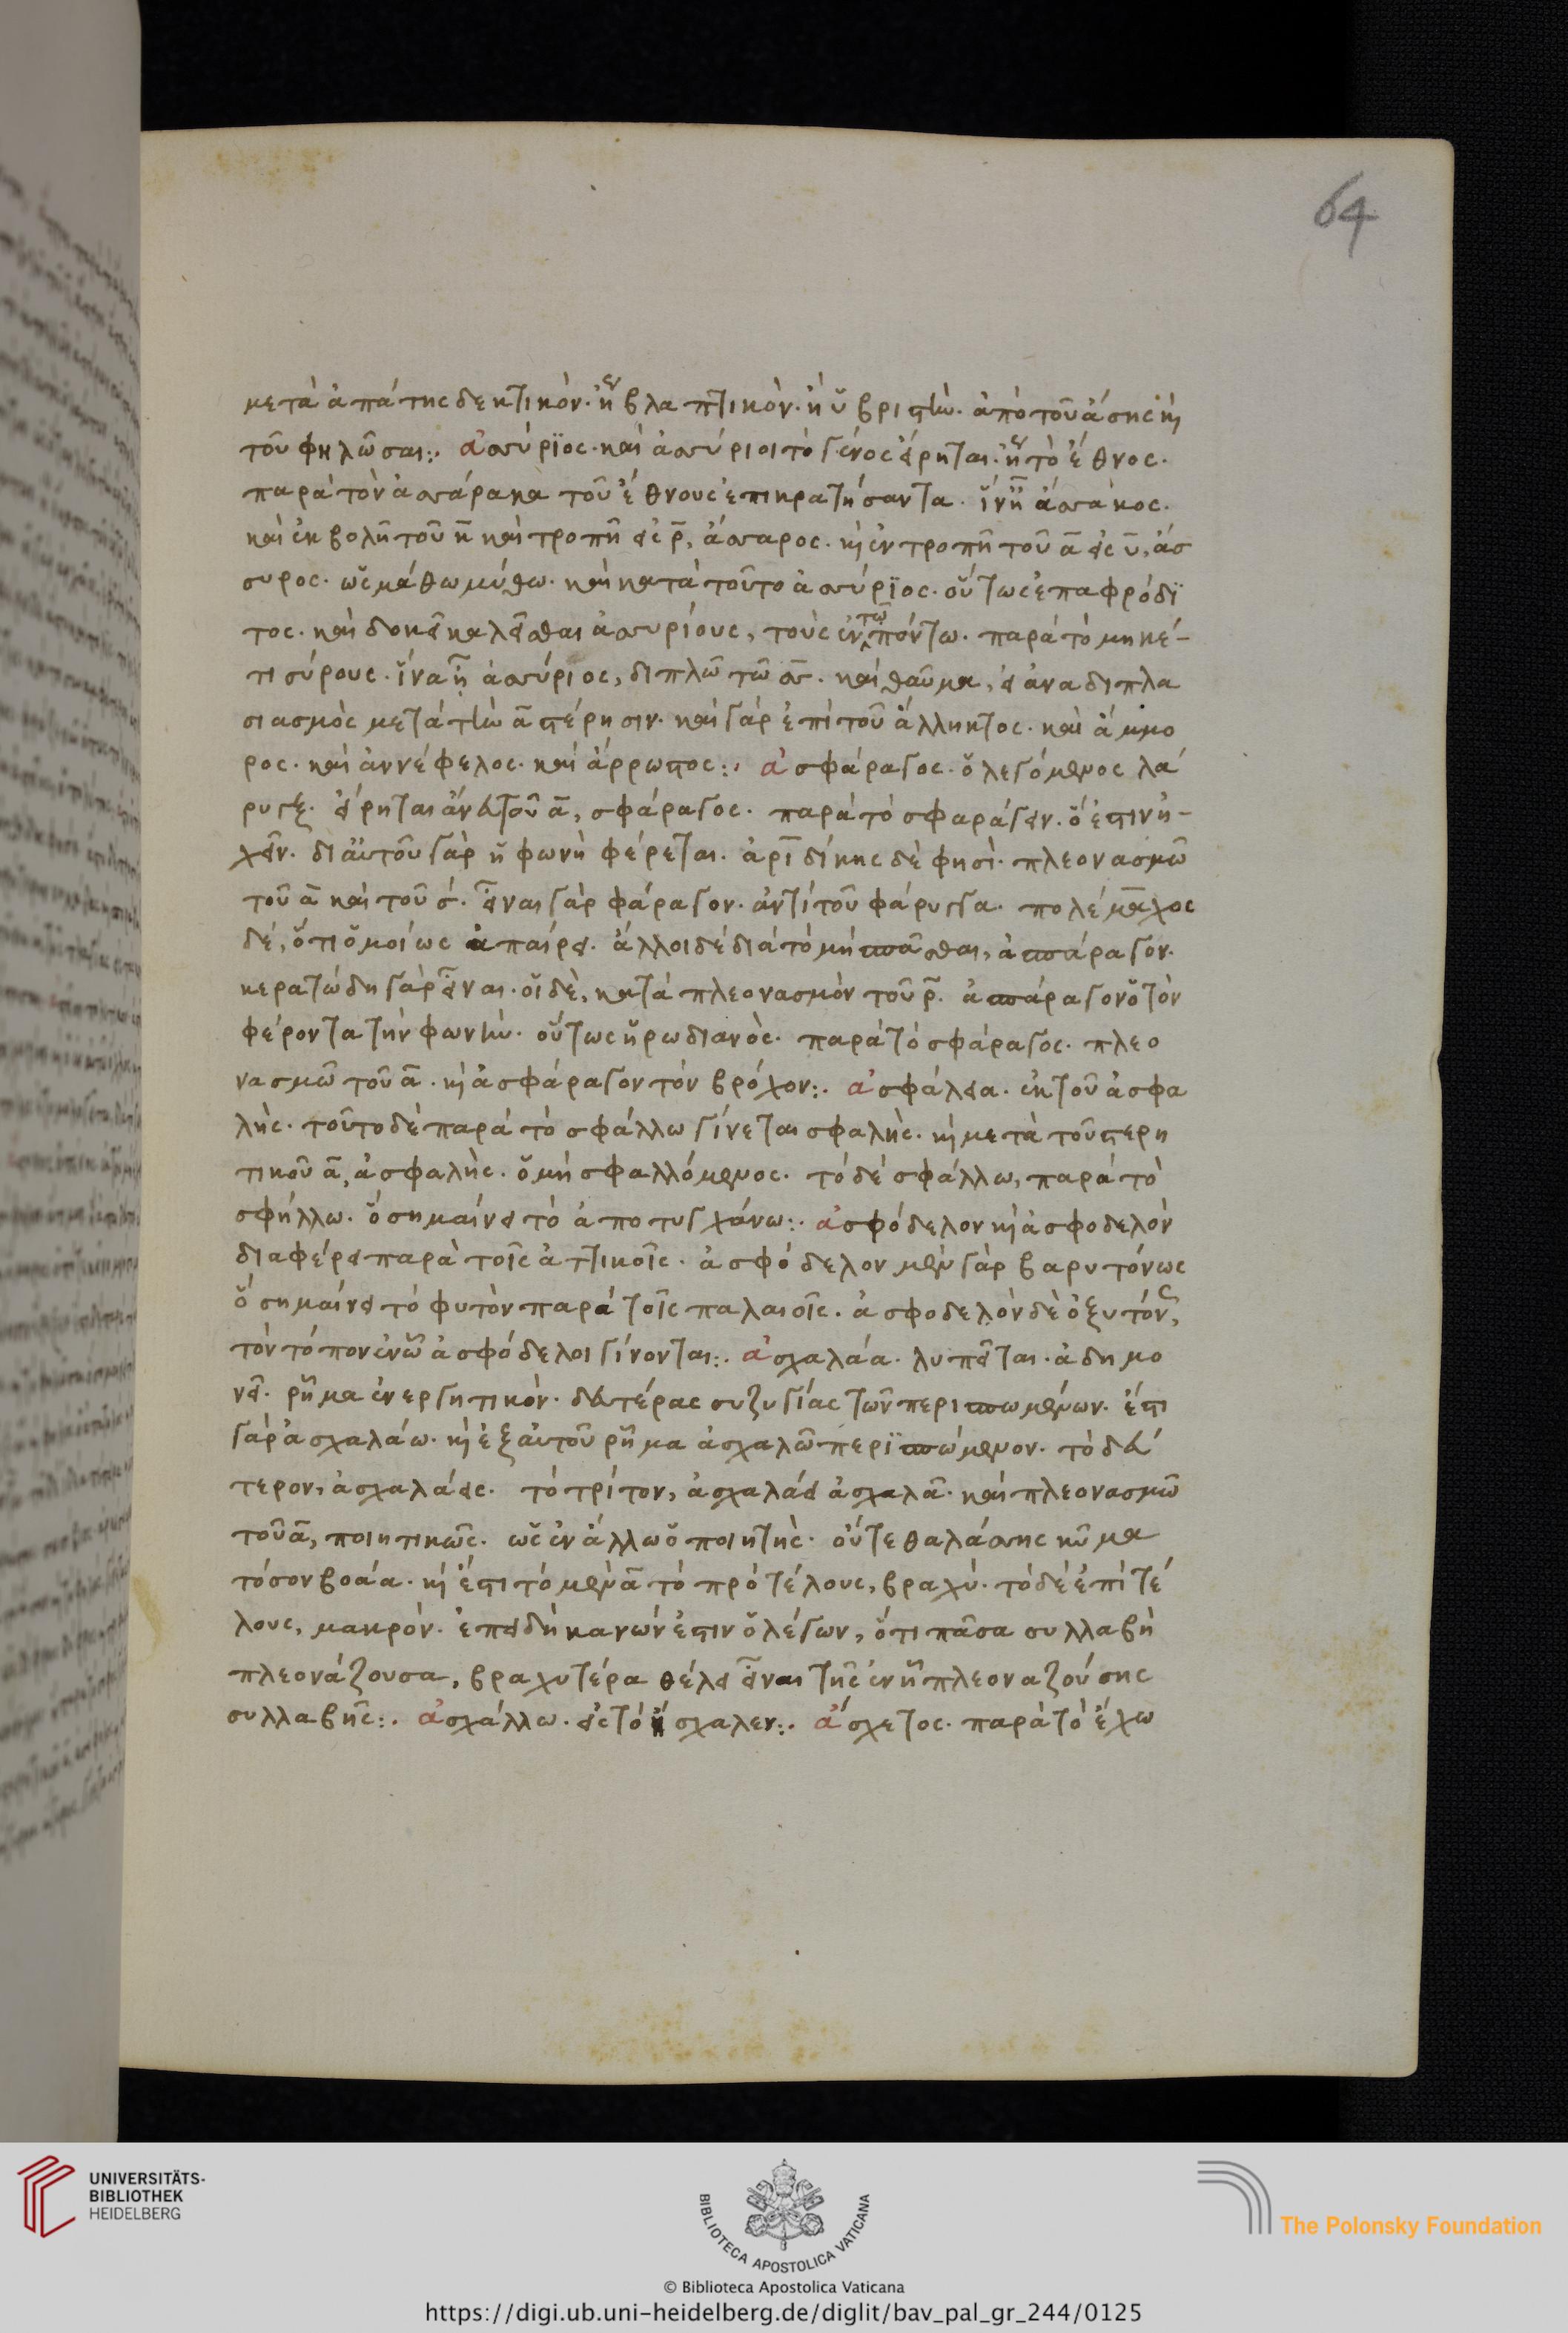 64
μετὰ ἀπάτης δεκτικόν. ἢ βλαπτικόν. ἢ ὑβριστήν. ἀπὸ τοῦ ἄσης καὶ
τοῦ φηλῶσαι:. ἀσσύρϊος. καὶ ἀσσύριοι τὸ γένος εἴρηται. ἢ τὸ ἔθνος.
παρὰ τὸν ἀσσάρακα τοῦ ἔθνους ἐπικρατήσαντα. ἵν ᾖ ἀσσακος.
καὶ ἐκβολῇ τοῦ κ̄ καὶ τροπῇ εἰς ρ̄, ἄσσαρος. κὶ ἐν τροπῇ τοῦ ᾱ εἰς ῡ, ἄσ
συρος. ὡς μάθω μύθω. καὶ κατὰ τοῦτο ἀσσύρϊος. οὕτως ἐπαφρόδϊ
τος. καὶ δοκεῖ καλεῖσθαι ἀσσυρίους, τοὺς ἐν τῶ πόντω. παρὰ τὸ μηκέ-
τι σύρους. ἵνα ᾖ ἀσσύριος, διπλῶ τῶ σσ̄. καὶ θαῦμα, εἰ ἀναδιπλα
σιασμὸς μετὰ τὴν ᾱ στέρησιν. καὶ γὰρ ἐπὶ τοῦ ἄλληκτος. καὶ ἄμμο
ρος. καὶ ἀννέφελος. καὶ ἄρρωστος:. ἀσφάραγος. ὁ λεγόμενος λά
ρυγξ. εἴρηται ἄνευ τοῦ ᾱ, σφάραγος. παρὰ τὸ σφαράγειν. ὅ ἐστιν ἠ-
χεῖν. δι αὐτοῦ γὰρ ἡ φωνὴ φέρεται. ἀρι δίκης δὲ φησὶ. πλεονασμῶ
τοῦ ᾱ καὶ τοῦ σ. εἶναι γὰρ φάραγον. ἀντὶ τοῦ φάρυγγα. πολέμαχος
δέ, ὅτι ὁμοίως ἀπαίρει. ἄλλοι δὲ διὰ τὸ μὴ σπᾶσθαι, ἀσπάραγον.
κερατώδη γὰρ εἶναι. οἱ δὲ, κατὰ πλεονασμὸν τοῦ ρ̄. ἀσπάραγον ὁ τὸν
φέροντα τὴν φωνήν. οὕτως ἡρωδιανὸς. παρὰ τὸ σφάραγος. πλεο
νασμῶ τοῦ ᾱ. κὶ ἀσφάραγον τὸν βρόχον:. ἀσφάλεια. ἐκ τοῦ ἀσφα
λὴς. τοῦτο δὲ παρὰ τὸ σφάλλω γίνεται σφαλὴς. κὶ μετὰ τοῦ στερη
τικοῦ ᾱ, ἀσφαλὴς. ὁ μὴ σφαλλόμενος. τὸ δὲ σφάλλω, παρὰ τὸ
σφήλλω. ὃ σημαίνει τὸ ἀποτυγχάνω:. ἀσφόδελον κὶ ἀσφοδελὸν
διαφέρει παρὰ τοῖς ἀττικοῖς. ἀσφόδελον μὲν γὰρ βαρυτόνως
ὃ σημαίνει τὸ φυτὸν παρὰ τοῖς παλαιοῖς. ἀσφοδελὸν δὲ ὀξυτόνως,
τὸν τόπον ἐν ᾧ ἀσφόδελοι γίνονται:. ἀσχαλάα. λυπεῖται. ἀδημο
νεῖ. ῥῆμα ἐνεργητικὸν. δευτέρας συζυγίας τῶν περισπωμένων. ἔστι
γὰρ ἀσχαλάω. κὶ ἐξ αὐτοῦ ῥῆμα ἀσχαλῶ περϊσπώμενον. τὸ δεύ
τερον, ἀσχαλάεις. τὸ τρίτον, ἀσχαλάει ἀσχαλᾶ. καὶ πλεονασμῶ
τοῦ ᾱ, ποιητικῶς. ὡς ἐν ἄλλω ὁ ποιητὴς. οὔτε θαλάσσης κῦμα
τόσον βοάα. κὶ ἔστι τὸ μὲν ᾱ τὸ πρὸ τέλους, βραχύ. τὸ δὲ ἐπὶ τέ
λους, μακρόν. ἐπειδὴ κανών ἐστιν ὁ λέγων, ὅτι πᾶσα συλλαβὴ
πλεονάζουσα, βραχυτέρα θέλει εἶναι τῆς ἐν ᾗ πλεοναζούσης
συλλαβῆς:. ἀσχάλλω. εἰς τὸ ἤσχαλεν:. ἄσχετος. παρὰ τὸ ἔχω
UNIVERSITÄTS-
BIBLIOTHEK
HEIDELBERG
BIBLIOTECA APOSTOLICA VATICANA
The Polonsky Foundation
© Biblioteca Apostolica Vaticana
https://digi.ub.uni-heidelberg.de/diglit/bav_pal_gr_244/0125